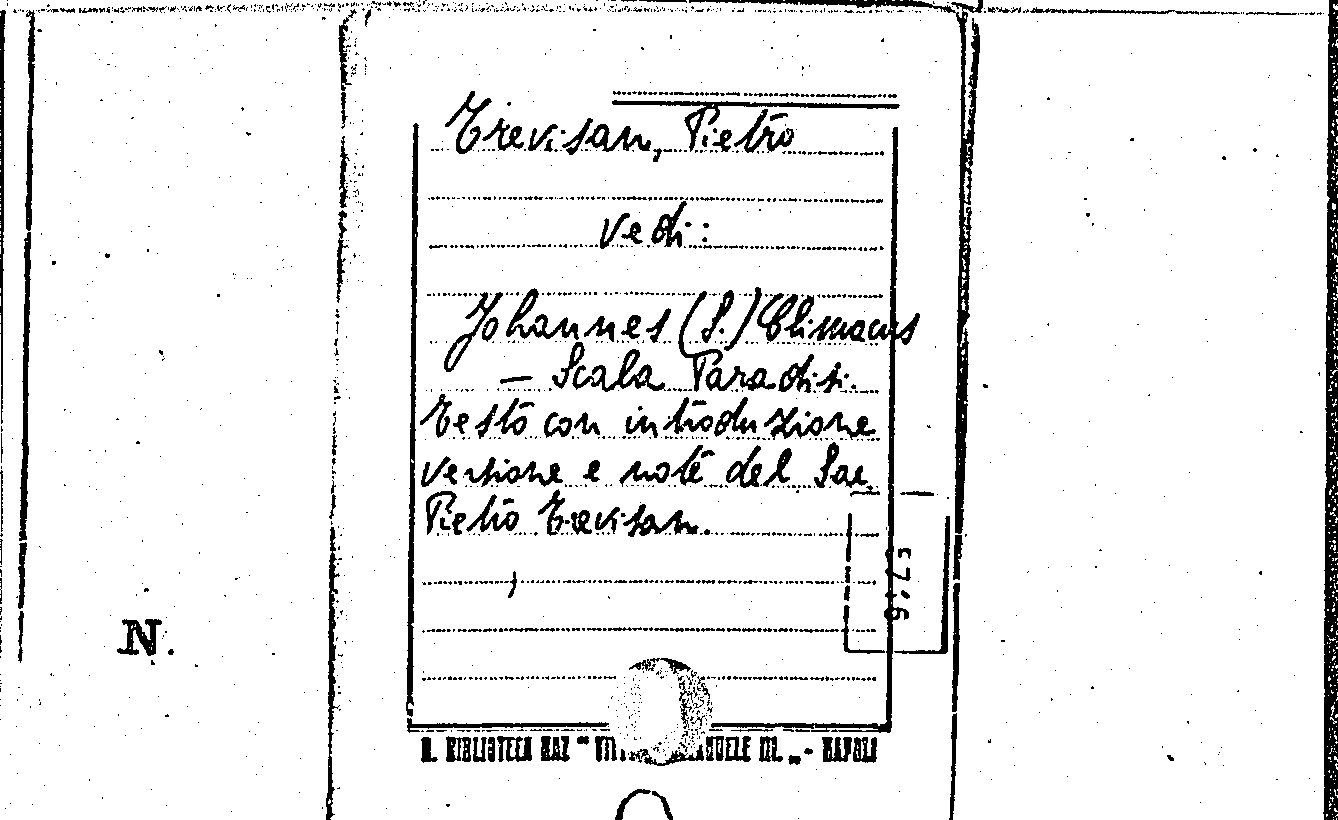 Trevisan, Pietro
vedi:
Johannes (S.) Climacus
— Scala Paradisi.
Testo con introduzione
versione e note del Sac.
Pietro Trevisan.
N.
R. BIBLIOTECA NAZ " VITT EMANUELE III. „ - NAPOLI